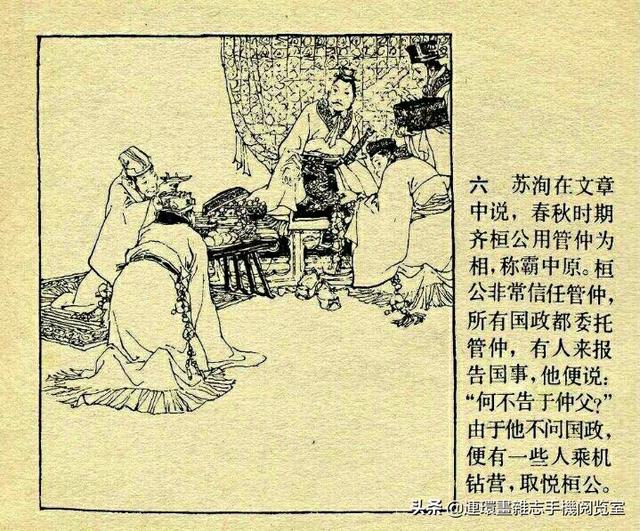 六　苏洵在文章
中说，春秋时期
齐桓公用管仲为
相，称霸中原。桓
公非常信任管仲，
所有国政都委托
管仲，有人来报
告国事，他便说：
“何不告于仲父？”
由于他不问国政，
便有一些人乘机
钻营，取悦桓公。
头条 @連環畫雜志手機阅览室